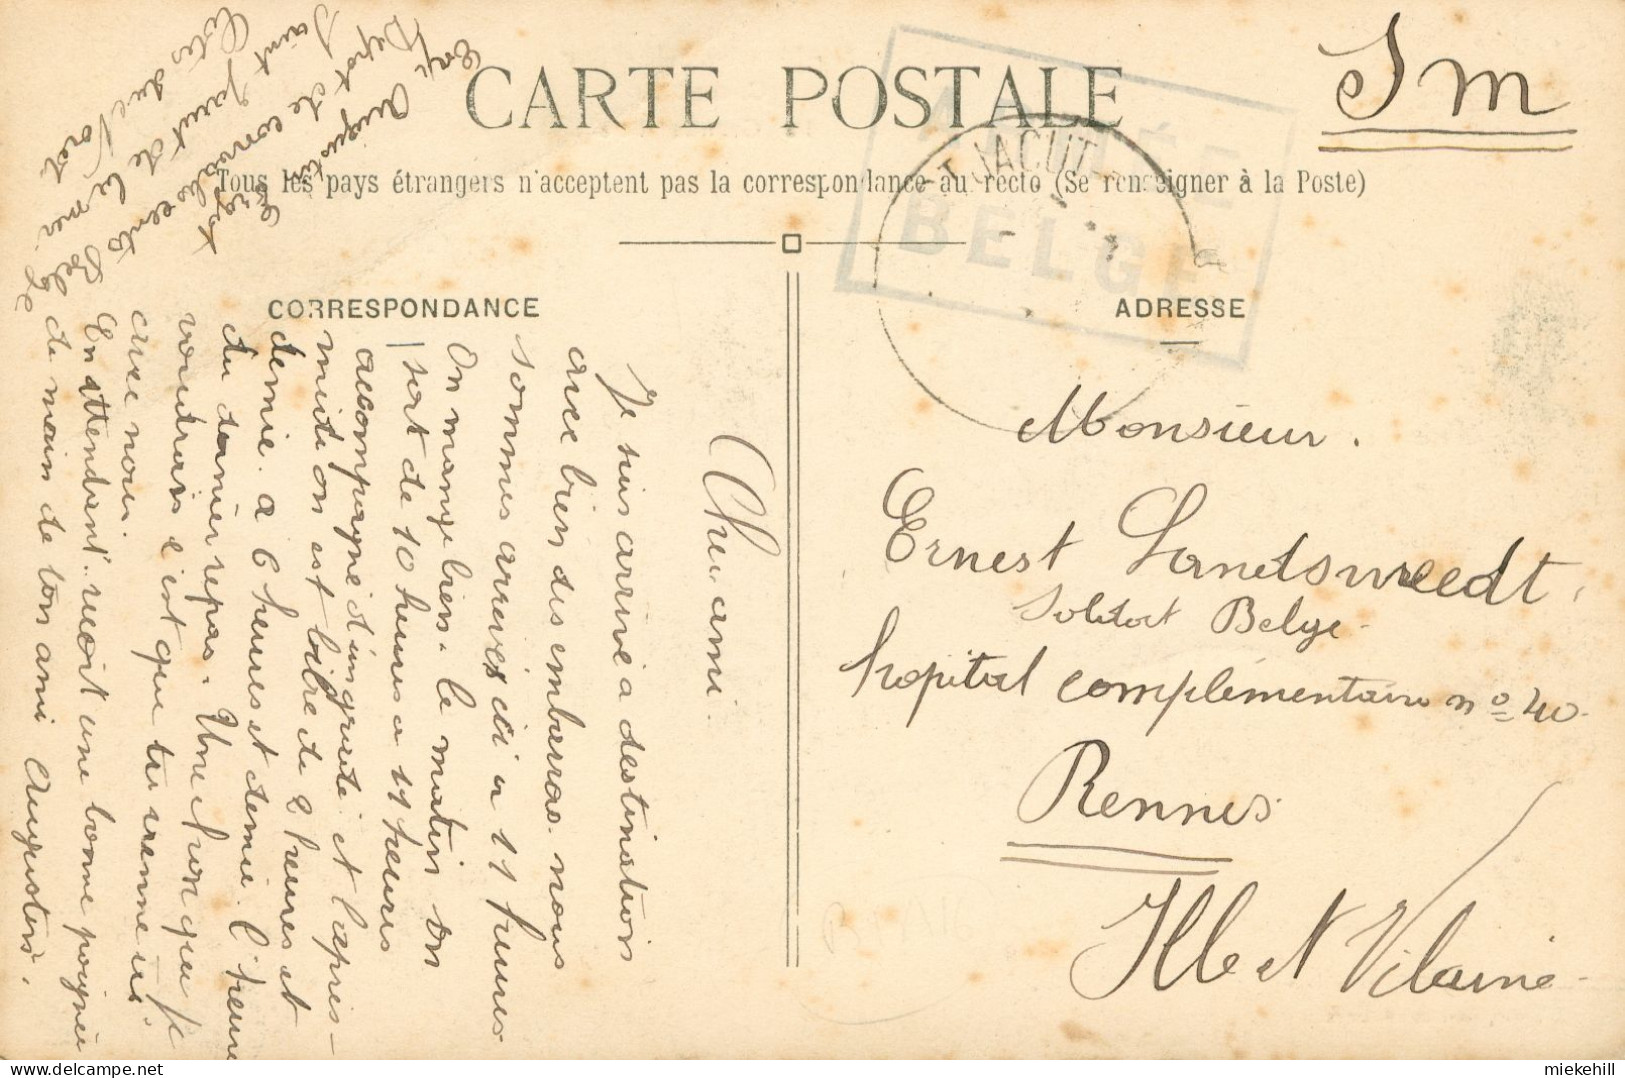 CARTE POSTALE
Tous les pays étrangers n'acceptent pas la correspondance au recto (Se renseigner à la Poste)
S m
ARMÉE
BELGE
ST JACUT
CORRESPONDANCE
ADRESSE
Monsieur.
Ernest Landsweedt,
Soldat Belge
hopital complémentaire nº 40.
Rennes
Ille et Vilaine
Cher ami.
Je suis arrivé a destination
avec bien des embarras. nous
sommes arrives ici a 11 heures
On mange bien. le matin on
sort de 10 heures a 11 heures
accompagné d'un gradé et l'apres-
midi on est libre de 2 heures et
demie. a 6 heures et demie. l'heure
du dernièr repas. Une chose que je
voudrais c'est que tu vienne ici
avec nous.
En attendant reçoit une bonne poignée
de main de ton ami Augustin.
Augustin
Depot de convalescents Belge
Saint Jacut de la mer
Cotes du Nord
miekehill